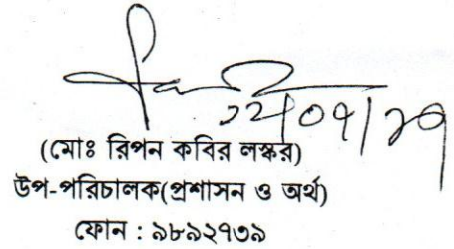 ১২/০৭/২৭
(মোঃ রিপন কবির লস্কর)
উপ-পরিচালক(প্রশাসন ও অর্থ)
ফোন : ৯৮৯২৭৩৯